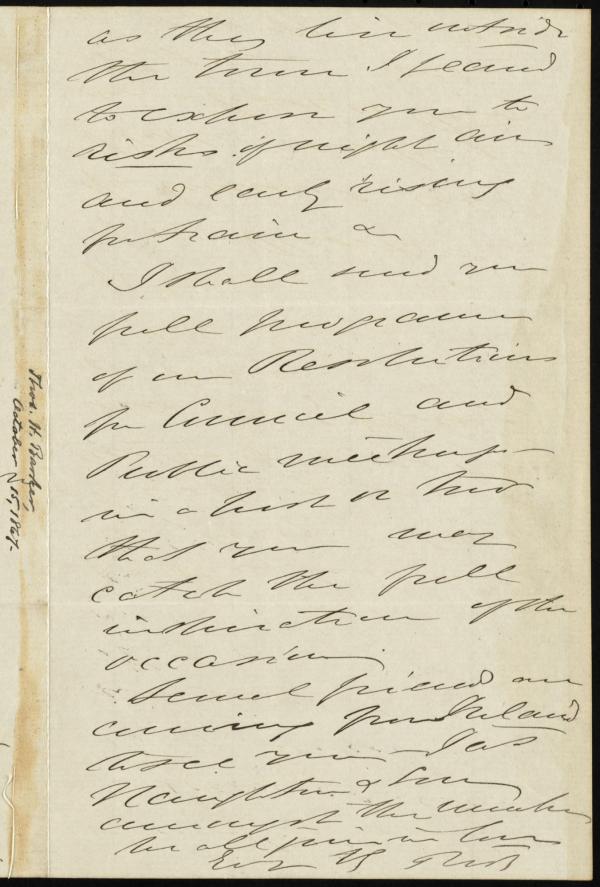 as they live outside
the town I feared
to expose you to
risks of night air
and early rising
for train &
I shall send you
full programme
of our Resolutions
for Council and
Public meetings
in a post or two
that you may
catch the full
inspiration of the
occasion.
Several friends are
coming from Ireland
to see you
Haughton &
amongst the number
We all join in love
Ever Yrs THB
Thos. H. Barker,
October 15, 1867.